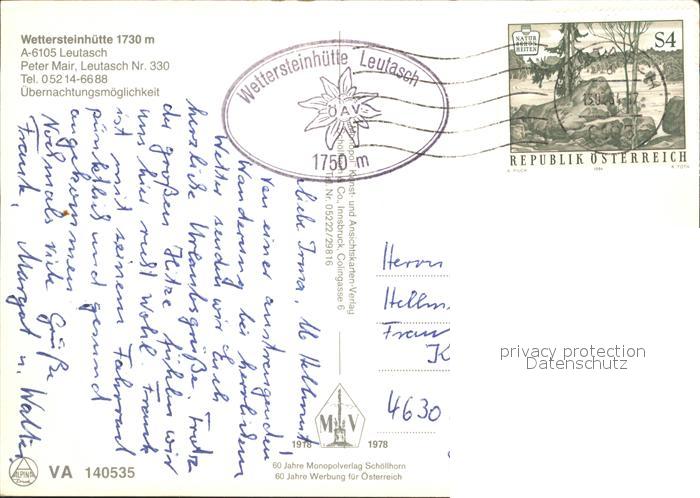 Wettersteinhütte 1730 m
A-6105 Leutasch
Peter Mair, Leutasch Nr. 330
Tel. 05214-6688
Übernachtungsmöglichkeit
Wettersteinhütte Leutasch
ÖAV
1750 m
NATUR
SCHÖN
HEITEN
S4
REPUBLIK ÖSTERREICH
Liebe Irma, lb Hellmut!
Von einer anstrengenden
Wanderung bei herrlichem
Wetter senden wir Euch
herzliche Urlaubsgrüße. Trotz
der großen Hitze fühlen wir
uns hier recht wohl. Frank
ist mit seinem Fahrrad
pünktlich und gesund
angekommen
Nochmals viele Grüße
Frank, Margot u. Walter
Monopol Kunst- und Ansichtskarten-Verlag
Co., Innsbruck, Colingasse 6
Tel. Nr. 05222/29816
Herrn
Hellm
Frau
K
4630
privacy protection
Datenschutz
MV
1918
1978
60 Jahre Monopolverlag Schöllhorn
60 Jahre Werbung für Österreich
ALPINA
VA 140535